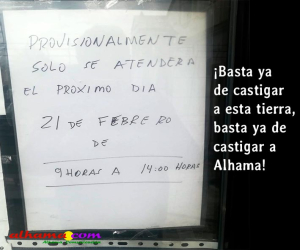 PROVISIONALMENTE
SOLO SE ATENDERA
EL PROXIMO DIA
21 DE FEBRERO
DE
9 HORAS A 14:00 HORAS
¡Basta ya
de castigar
a esta tierra,
basta ya de
castigar a
Alhama!
alhama.com